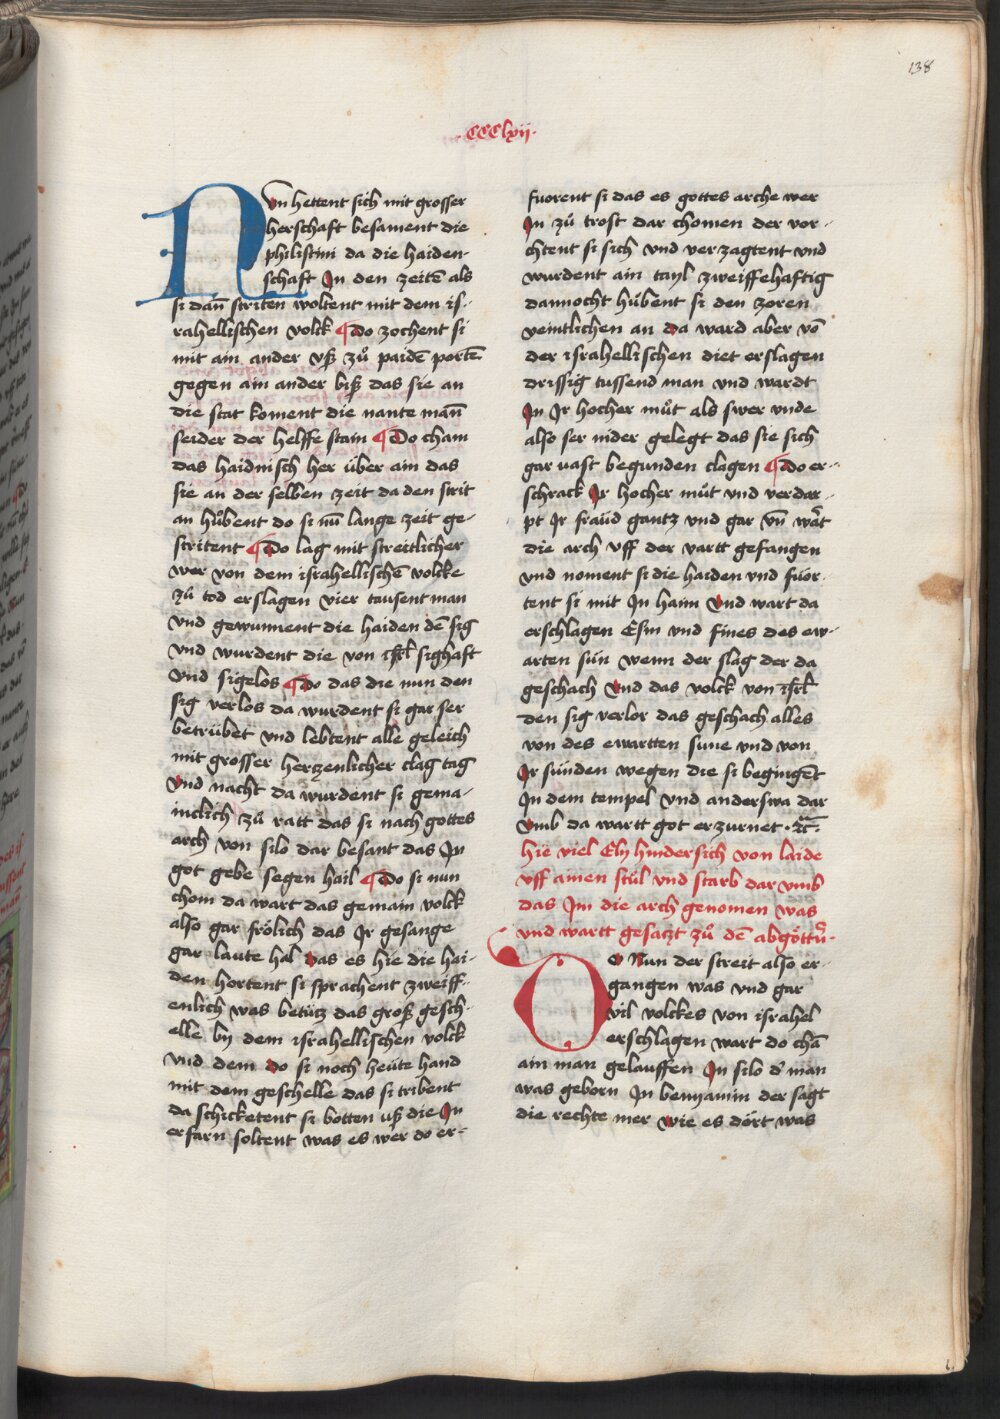 138
·CCClxii·
NVn hettent sich mit grosser
herschaft besament die
philistini da die haiden-
schaft In den zeitē als
si dañ striten woltent mit dem is-
rahellischen volck ¶ Do zochent si
mit ain ander vß zů paidē portē
gegen ain ander biß das sie an
die stat koment die nante mañ
seider der helffe stain ¶ Do cham
das haidnisch her über ain das
sie an der selben zeit da den strit
an hůbent do si nū lange zeit ge-
stritent ¶ Do lag mit streitlicher
wer von dem israhellischē volcke
zů tod erslagen vier tausent man
vnd gewunnent die haiden dē sig
vnd wurdent die von isrl̄ sighaft
vnd sigelos ¶ Do das die nun den
sig verlos da wurdent si gar ser
betrübet vnd lebtent alle geleich
mit grosser hertzenlicher clag tag
Vnd nacht da wurdent si gema-
inclich zů ratt das si nach gottes
arch von silo dar besant das In
got gebe segen hail ¶ Do si nun
chom da wart das gemain volck
also gar frölich das Ir gesange
gar laute hal Was es hie die hai-
den hortent si sprachent zweiff-
enlich was betütz das groß gesch-
elle by dem israhellischen volck
vnd dem do si noch heüte hand
mit dem geschelle das si tribent
da schicketent si botten uß die In
erfarn soltent was es wer do er-
fuorent si das es gottes arche wer
In zů trost dar chomen der vor-
chtent si sich vnd verzagtent vnd
wurdent ain tayl zweiffehaftig
dannocht hůbent si den zoren
veintlichen an da ward aber vō
der israhellischen diet erslagen
drissig tussend man vnd wardt
In Ir hocher můt als swer vnde
also ser nider gelegt das sie sich
gar vast begunden clagen ¶ Do er-
schrack Ir hocher můt vnd verdar-
pt Ir fraüd gantz vnd gar vñ wart
die arch vff der vartt gefangen
vnd noment si die haiden vnd fůor-
tent si mit In haim Vnd wart da
erschlagen Efni vnd fines des ew-
arten sün wenn der slag der da
geschach Vnd das volck von isrl̄
den sig verlor das geschach alles
von des ewartten sune vnd von
Ir sünden wegen die si begingēt
In dem tempel vnd anderswa dar
Vmb da wartt got erzurnet · ꝛc̄ ·
hie viel Ely hindersich von laide
vff ainen stůl vnd starb dar vmb
das Im die arch genomen was
vnd wartt gesatzt zů dē abgöttn̄·
DO Nun der streit also er-
gangen was vnd gar
vil volckes von israhel
erschlagen wart do chā
ain man gelauffen In silo d' man
was geborn In benyamin der sagt
die rechte mer wie es dört was